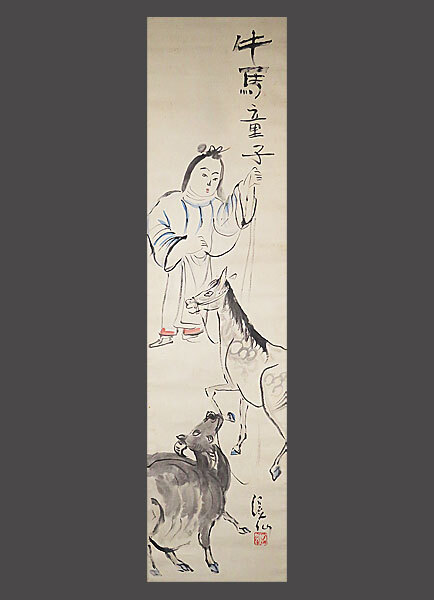 牛馬童子
渓仙